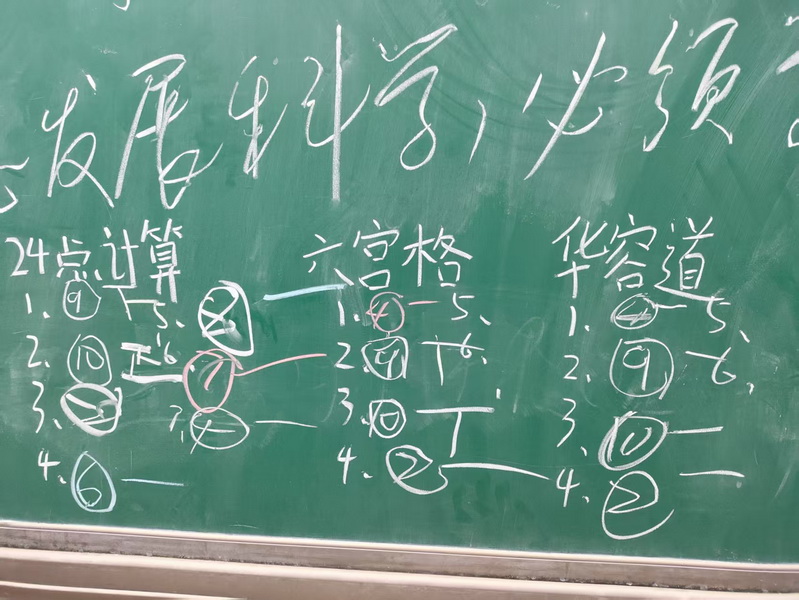 发展科学,必须
24点计算
1. ⑨ 5、②
2、⑩ 6 ①
3、 7、
4、⑥
六宫格
1、④ 5、
2、④ 6、
3、⑩
4、②
华容道
1、④ 5、
2、⑨ 6、
3、⑩
4、②